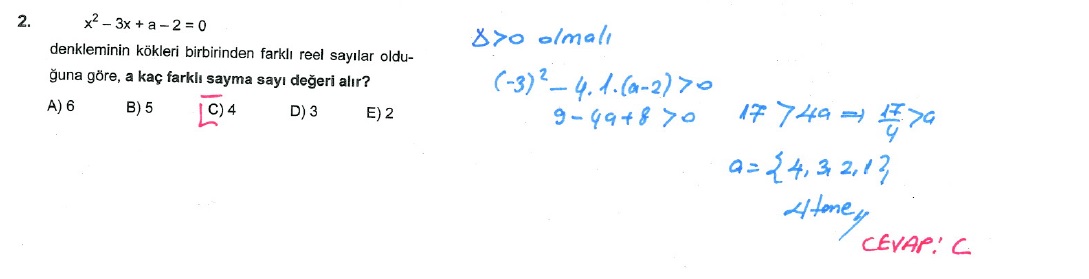 2. x² – 3x + a – 2 = 0
denkleminin kökleri birbirinden farklı reel sayılar oldu-
ğuna göre, a kaç farklı sayma sayı değeri alır?
A) 6 B) 5 C) 4 D) 3 E) 2
Δ>0 olmalı
(-3)² - 4.1.(a-2) > 0
9 - 4a + 8 > 0
17 > 4a ⇒ 17/4 > a
a = {4, 3, 2, 1}
4 tane
CEVAP: C